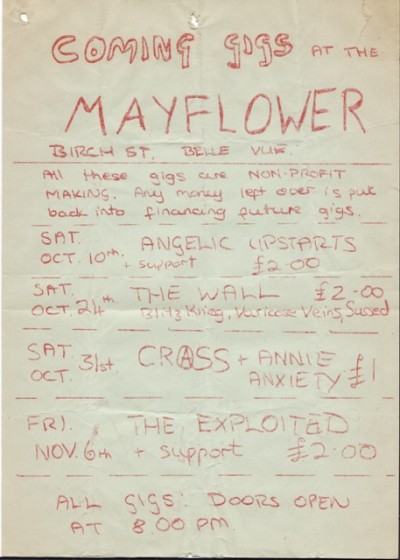 COMING GIGS AT THE
MAYFLOWER
BIRCH ST. BELLE VUE.
All these gigs are NON-PROFIT
MAKING. Any money left over is put
back into financing future gigs.
SAT. OCT. 10th ANGELIC UPSTARTS
+ support £2.00
SAT. OCT. 24th THE WALL £2.00
Blitz Krieg, Varicose Veins, Sussed
SAT. OCT. 31st. CRASS + ANNIE
ANXIETY £1
FRI. THE EXPLOITED
NOV. 6th + support £2.00
ALL GIGS: DOORS OPEN
AT 8.00 PM.